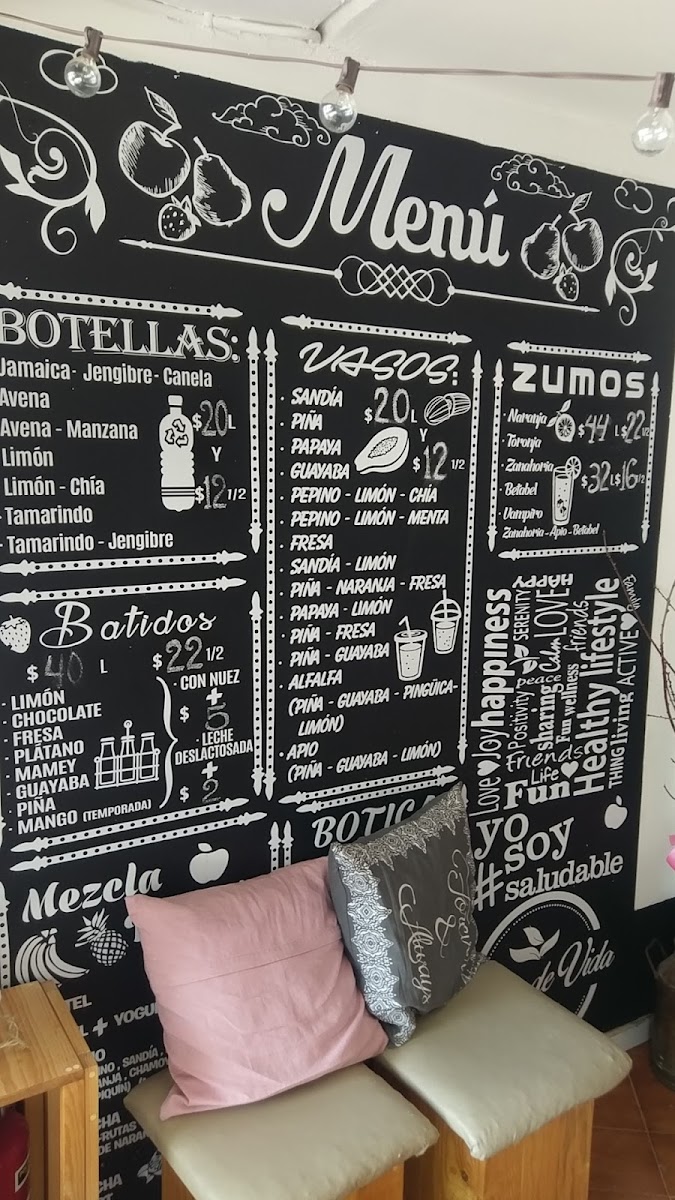 Menú
BOTELLAS:
Jamaica - Jengibre - Canela
Avena
Avena - Manzana
Limón
Limón - Chía
Tamarindo
Tamarindo - Jengibre
$20 L
Y
$12 1/2
VASOS:
· SANDÍA
· PIÑA
· PAPAYA
· GUAYABA
· PEPINO - LIMÓN - CHÍA
· PEPINO - LIMÓN - MENTA
· FRESA
· SANDÍA - LIMÓN
· PIÑA - NARANJA - FRESA
· PAPAYA - LIMÓN
· PIÑA - FRESA
· PIÑA - GUAYABA
· ALFALFA
(PIÑA - GUAYABA - PINGÜICA-
LIMÓN)
· APIO
(PIÑA - GUAYABA - LIMÓN)
$20 L
Y
$12 1/2
ZUMOS
· Naranja
· Toronja
· Zanahoria
· Betabel
· Vampiro
Zanahoria - Apio - Betabel
$44 L $22 1/2
$32 L $16 1/2
Batidos
$40 L $22 1/2
· LIMÓN
· CHOCOLATE
· FRESA
· PLÁTANO
· MAMEY
· GUAYABA
· PIÑA
· MANGO (TEMPORADA)
· CON NUEZ
+
$5
· LECHE
DESLACTOSADA
+
$2
Mezcla
TEL
L + YOGU
BOTICA
Love
Joy
happiness
Positivity
SERENITY
HAPPY
peace
Calm
LOVE
sharing
Fun wellness
friends
Friends
Life
Fun
Healthy lifestyle
THING
living
ACTIVE
yo
soy
#saludable
de Vida
Always
&